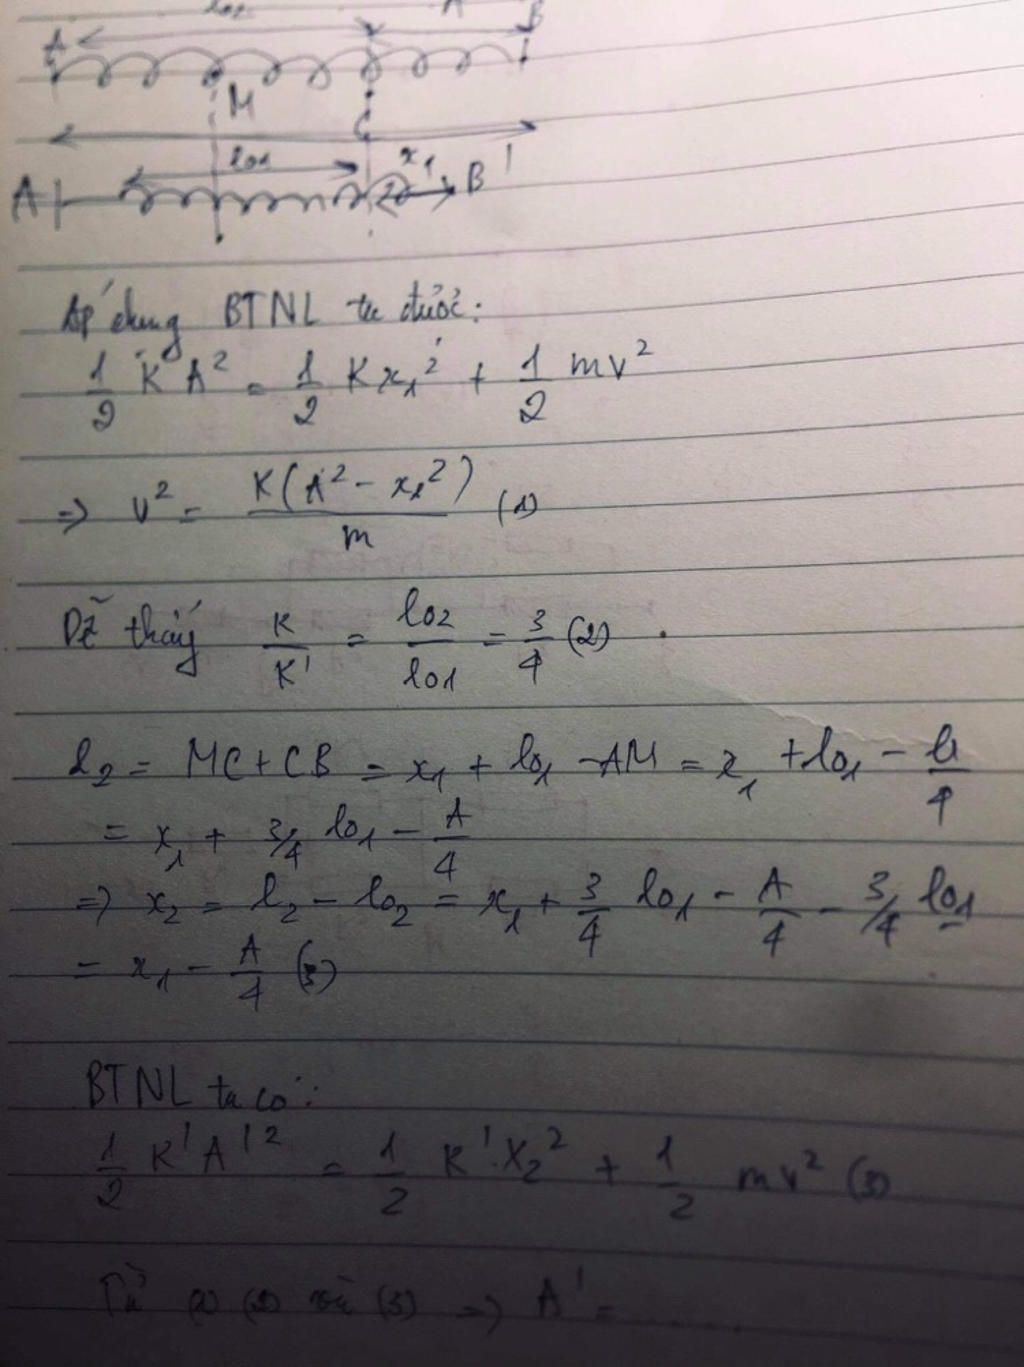 l02 A
A B
M
C
l01 x1
A B'
Áp dụng BTNL ta được:
1/2 KA² = 1/2 Kx1² + 1/2 mv²
=> v² = K(A² - x1²)/m (1)
Dễ thấy K/K' = l02/l01 = 3/4 (2)
l2 = MC + CB = x1 + l01 - AM = x1 + l01 - l1/4
= x1 + 3/4 l01 - A/4
=> x2 = l2 - l02 = x1 + 3/4 l01 - A/4 - 3/4 l01
= x1 - A/4 (3)
BTNL ta có:
1/2 K'A'² = 1/2 K'.X2² + 1/2 mv² (3)
Từ (2) và (3) => A' = ......